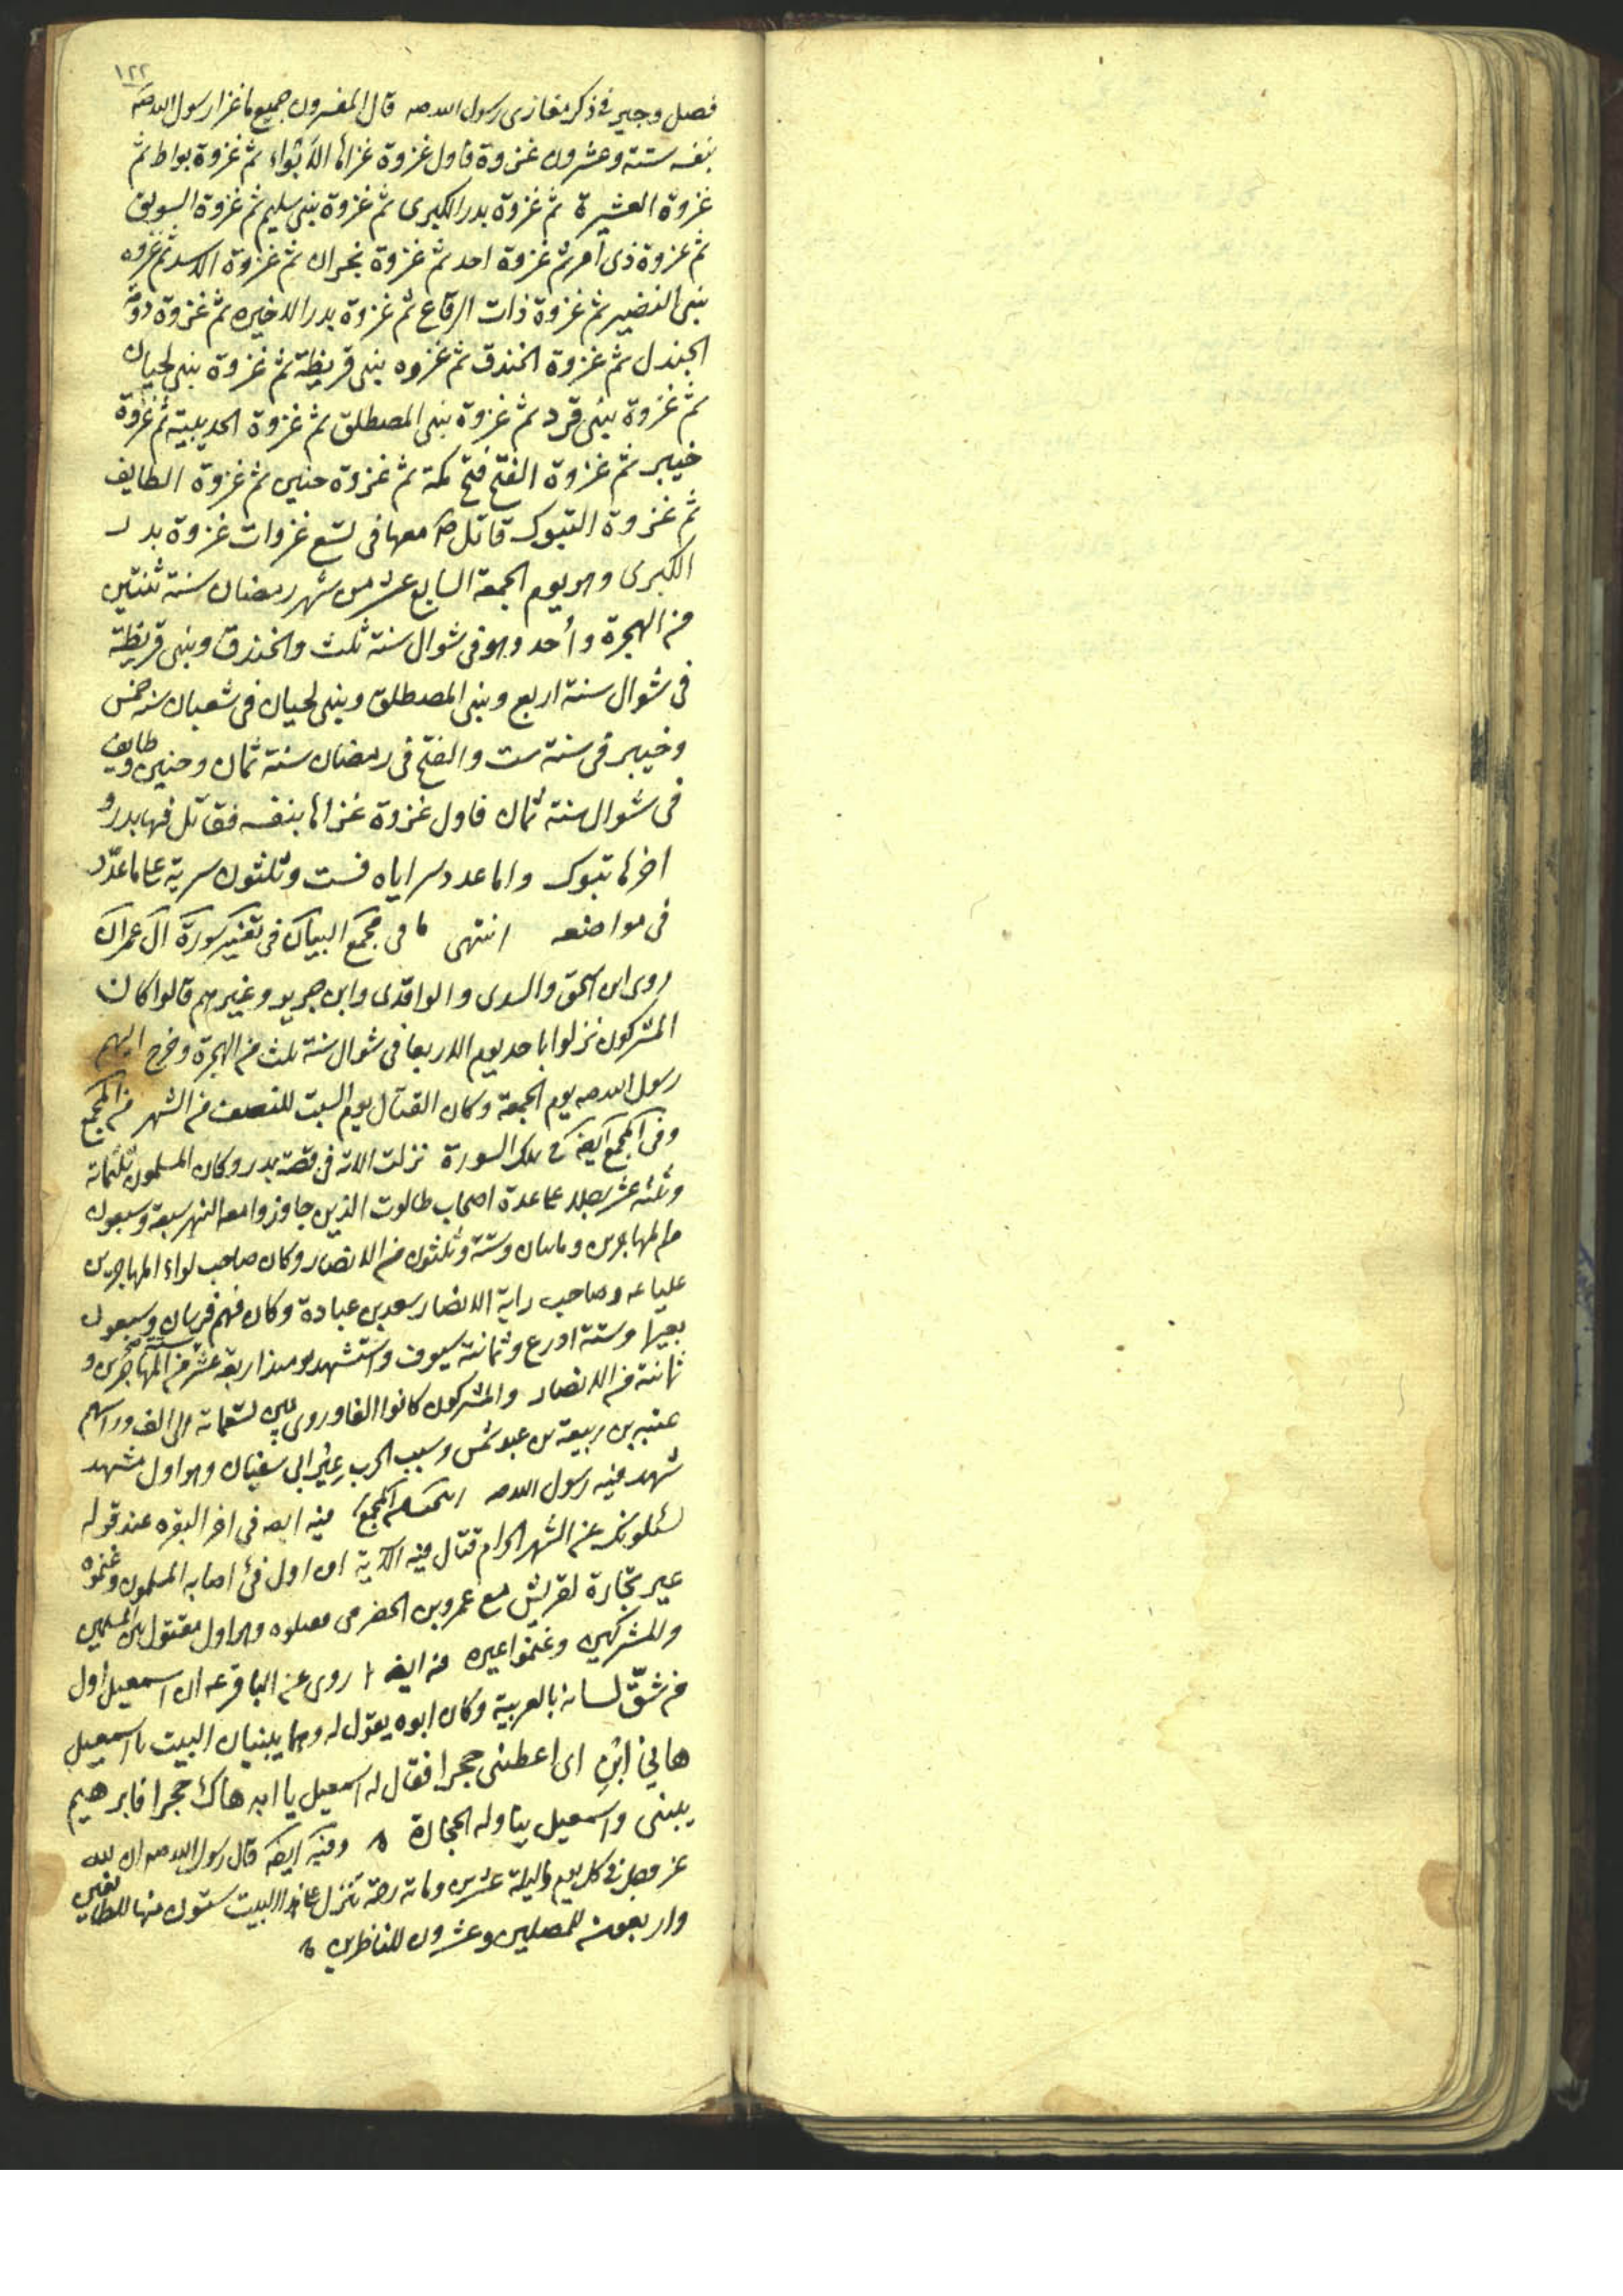 ١٢٢
فصل وجيز فى ذكر مغازى رسول الله صه قال المفسرون جميع ما غزا رسول الله صه
بنفسه ستة وعشرون غزوة فاول غزوة غزاها الأبواء ثم غزوة بواط ثم
غزوة العشيرة ثم غزوة بدر الكبرى ثم غزوة بنى سليم ثم غزوة السويق
ثم غزوة ذى امر ثم غزوة احد ثم غزوة نجران ثم غزوة الاسد ثم غزوه
بنى النضير ثم غزوة ذات الرقاع ثم غزوة بدر الاخيره ثم غزوة دومة
الجندل ثم غزوة الخندق ثم غزوه بنى قريظة ثم غزوة بنى لحيان
ثم غزوة بنى قرد ثم غزوة بنى المصطلق ثم غزوة الحديبية ثم غزوة
خيبر ثم غزوة الفتح فتح مكة ثم غزوة حنين ثم غزوة الطايف
ثم غزوة التبوك قاتل صه معها فى تسع غزوات غزوة بدر
الكبرى وهو يوم الجمعة السابع عشر من شهر رمضان سنة ثنتين
من الهجرة وأحد وهو فى شوال سنة ثلث والخندق وبنى قريظة
فى شوال سنة اربع وبنى المصطلق وبنى لحيان فى شعبان سنة خمس
وخيبر فى سنة ست والفتح فى رمضان سنة ثمان وحنين وطايف
فى شوال سنة ثمان فاول غزوة غزاها بنفسه فقاتل فيها بدر و
اخرها تبوك واما عدد سراياه فست وثلثون سرية على ما عدّد
فى مواضعه انتهى ما فى مجمع البيان فى تفسير سورة آل عمران
روى ابن اسحق والسدى والواقدى وابن جرير وغيرهم قالوا كان
المشركون نزلوا باحد يوم الاربعا فى شوال سنة ثلث من الهجرة وخرج اليهم
رسول الله صه يوم الجمعة وكان القتال يوم السبت للنصف من الشهر من المجمع
وفى المجمع ايضا فى تلك السورة نزلت الاية فى قصة بدر وكان المسلمون ثلثمائة
وثلثة عشر رجلا على عدة اصحاب طالوت الذين جاوزوا معه النهر سبعة وسبعون
من المهاجرين ومايتان وستة وثلثون من الانصار وكان صاحب لواء المهاجرين
عليا عه وصاحب راية الانصار سعد بن عبادة وكان فيهم فرسان وسبعون
بعيرا وستة ادرع وثمانية سيوف واستشهد يومئذ اربعة عشر ستة من المهاجرين و
ثمانية من الانصار والمشركون كانوا الفا وروى بين تسعمائة الى الف وراسهم
عتبه بن ربيعة بن عبد شمس وسبب الحرب عير ابى سفيان وهو اول مشهد
شهد فيه رسول الله صه من المجمع فيه ايضا فى اخر البقره عند قوله
يسئلونك عن الشهر الحرام قتال فيه الآية ان اول فئ اصابه المسلمون وغنموه
عير تجارة لقريش مع عمرو بن الحضرمى فقتلوه وهو اول مقتول بين المسلمين
والمشركين وغنموا عيره منه ايضا روى عن الباقر عه ان اسمعيل اول
من شقّ لسانه بالعربية وكان ابوه يقول له وهما يبنيان البيت يا اسمعيل
هابي ابن اى اعطنى حجرا فقال له اسمعيل يا ابه هاك حجرا فابرهيم
يبنى واسمعيل يناوله الحجارة ه وفيه ايضا قال رسول الله صه ان لله
عز وجل فى كل يوم وليلة عشرين ومائة رحمة تنزل على هذا البيت ستون منها للطايفين
واربعون للمصلين وعشرون للناظرين ه